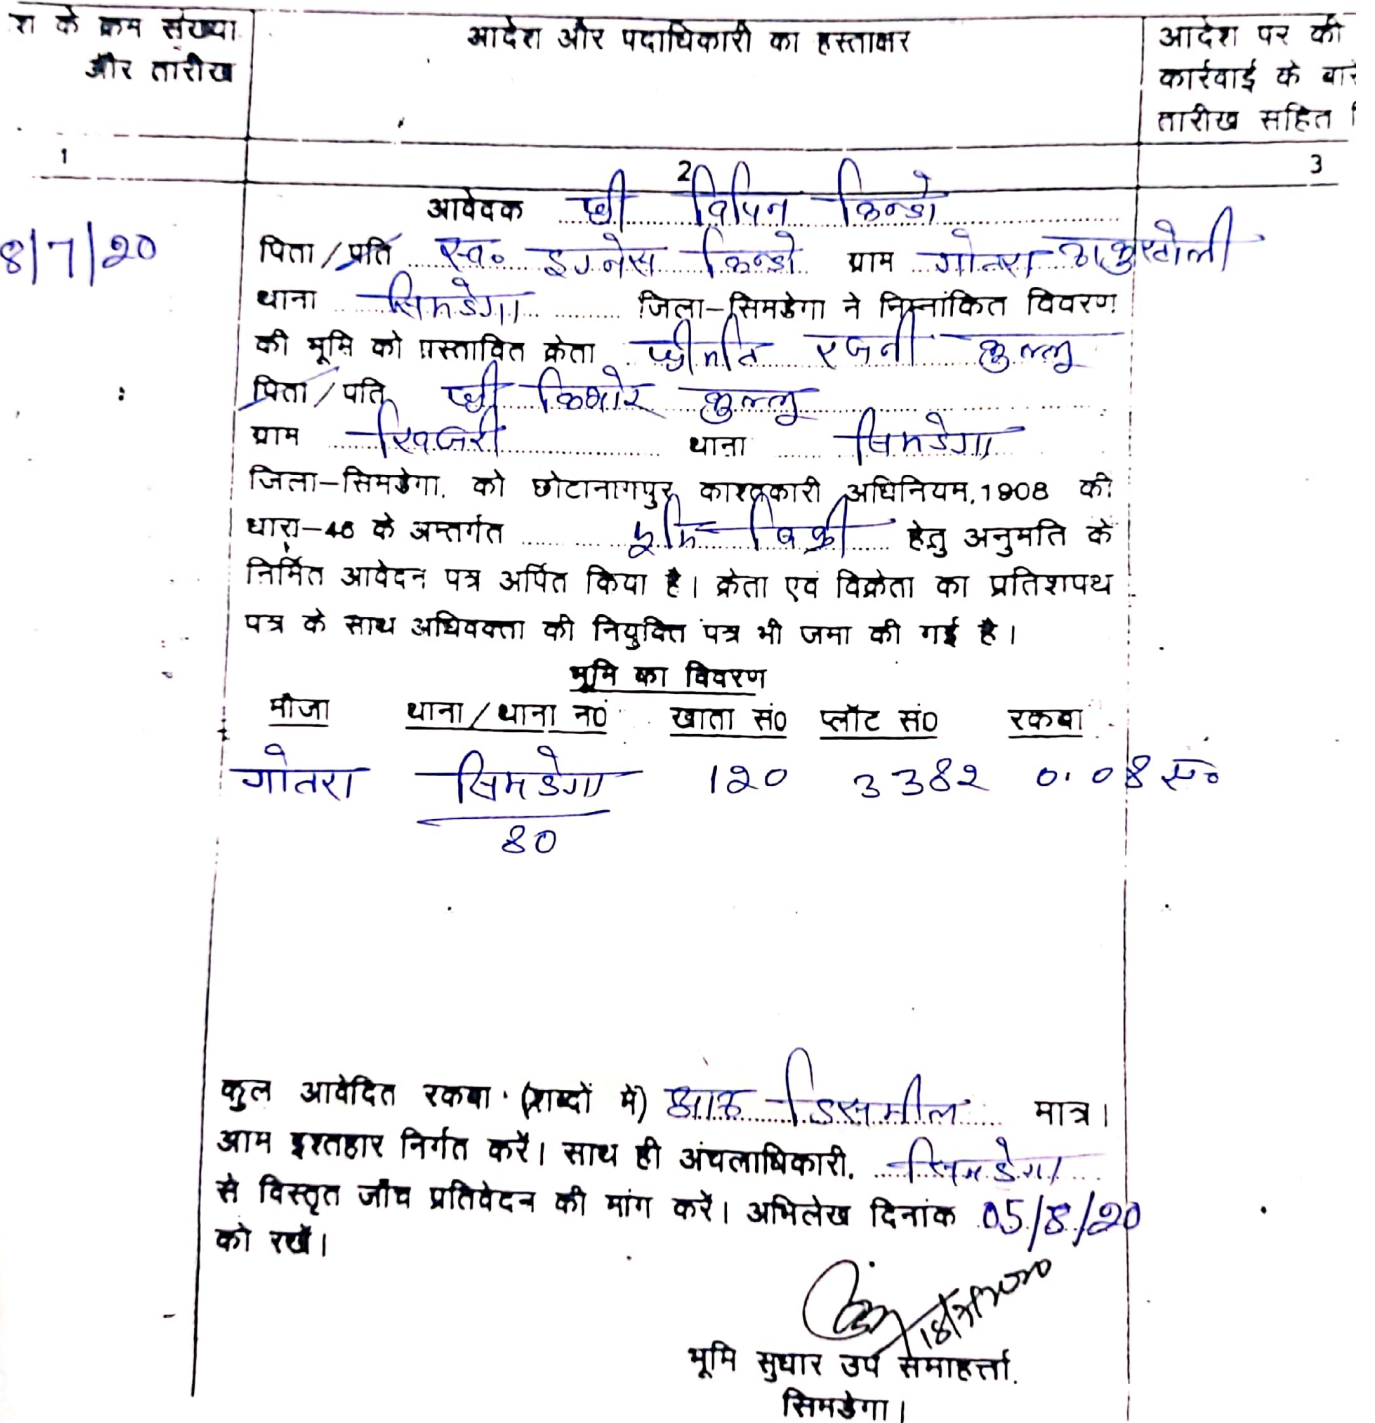 श के क्रम संख्या और तारीख
आदेश और पदाधिकारी का हस्ताक्षर
आदेश पर की
कार्रवाई के बारे
तारीख सहित
1
2
3
8/7/20
आवेदक श्री विपिन किन्डो
पिता/प्रति स्व० इग्नेस किन्डो ग्राम गोतरा ठाकुरटोली
थाना सिमडेगा जिला-सिमडेगा ने निम्नांकित विवरण
की भूमि को प्रस्तावित क्रेता श्रीमति रजनी कुल्लू
पिता/पति श्री किशोर कुल्लू
ग्राम खिजरी थाना सिमडेगा
जिला-सिमडेगा. को छोटानागपुर काश्तकारी अधिनियम,1908 की
धारा-46 के अन्तर्गत भूमि बिक्री हेतु अनुमति के
निर्मित आवेदन पत्र अर्पित किया है। क्रेता एवं विक्रेता का प्रतिशपथ
पत्र के साथ अधिवक्ता की नियुक्ति पत्र भी जमा की गई है।
भूमि का विवरण
मौजा थाना/थाना न0 खाता सं0 प्लॉट सं0 रकबा
गोतरा सिमडेगा 120 3382 0.08 ए०
80
कुल आवेदित रकबा (शब्दों में) आठ डिसमील मात्र।
आम इश्तहार निर्गत करें। साथ ही अंचलाधिकारी, सिमडेगा
से विस्तृत जाँच प्रतिवेदन की मांग करें। अभिलेख दिनांक 05/8/20
को रखें।
भूमि सुधार उप समाहर्त्ता.
सिमडेगा।